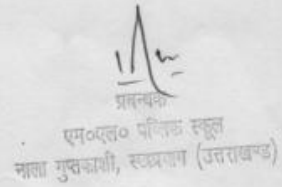 प्रबन्धक
एम०एल० पब्लिक स्कूल
नाला गुप्तकाशी, रूद्रप्रयाग (उत्तराखण्ड)